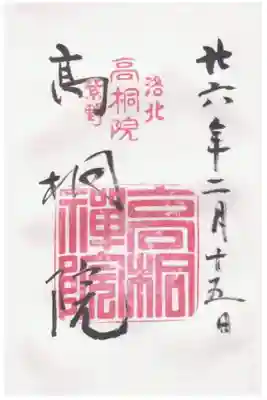 廿六年二月十五日
洛北
高桐院
紫野
高桐院
高桐
禪院